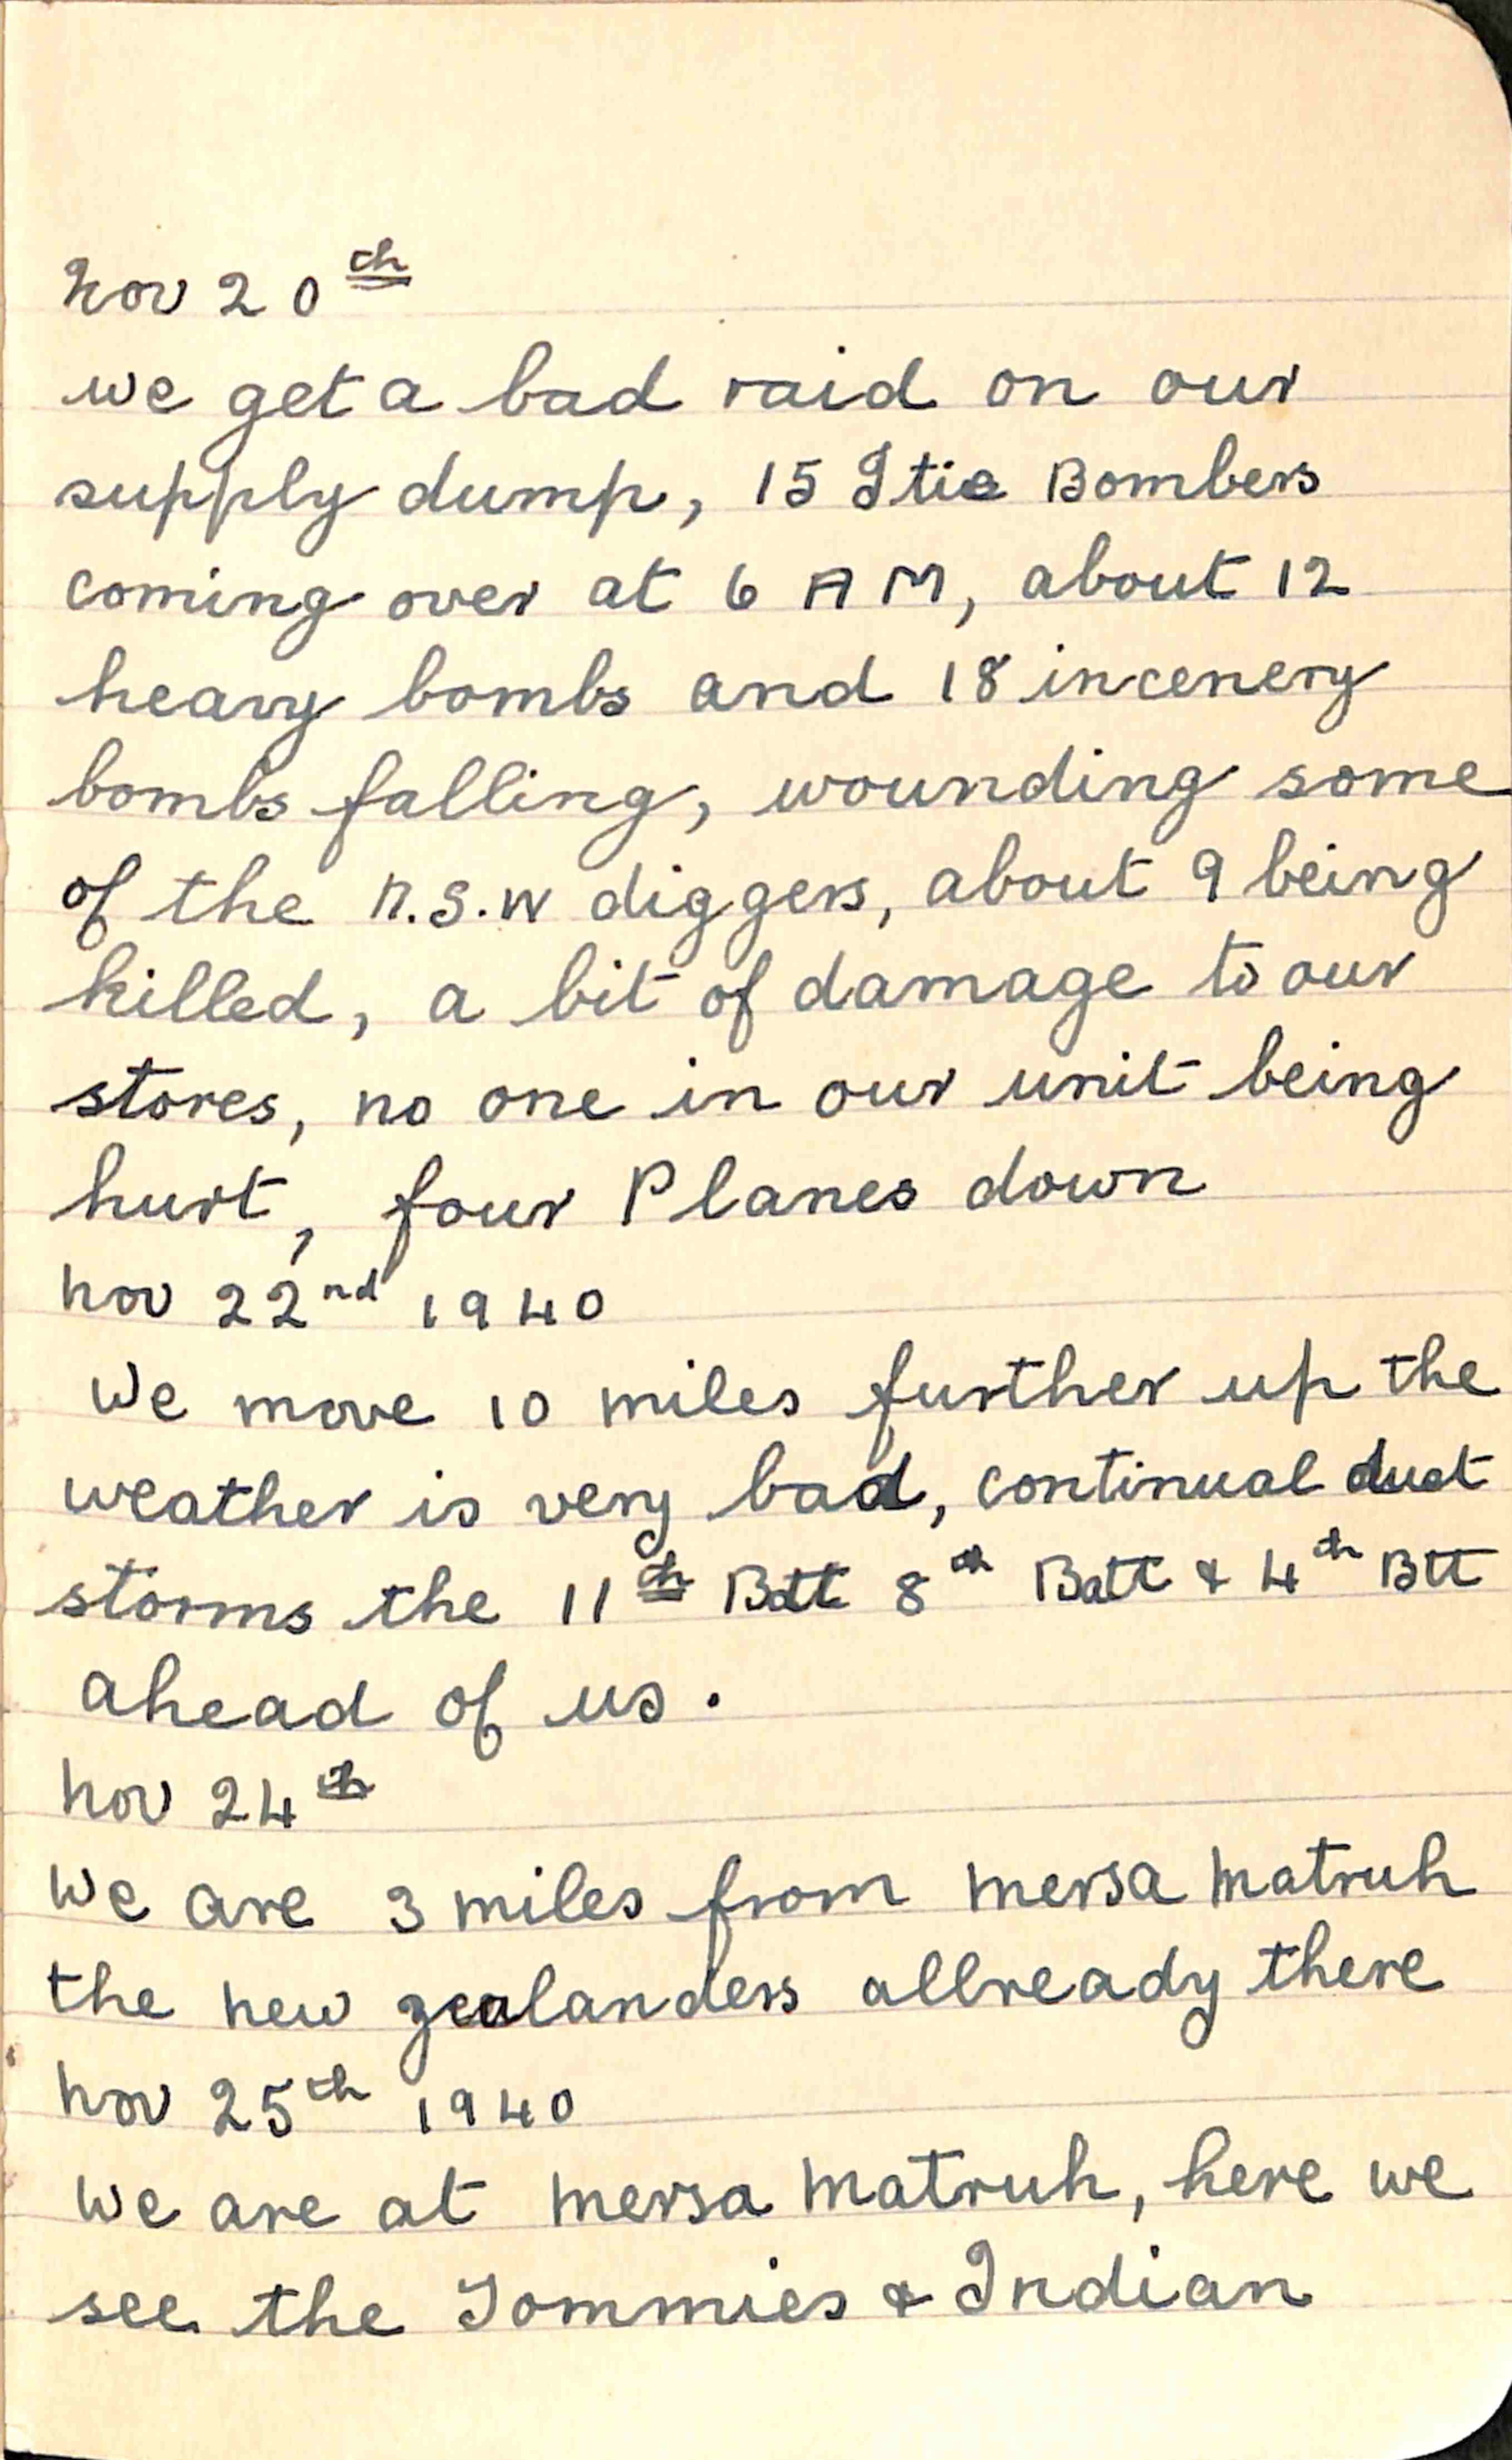 Nov 20th
we get a bad raid on our
supply dump, 15 Itie Bombers
coming over at 6 AM, about 12
heavy bombs and 18 incenery
bombs falling, wounding some
of the N.S.W diggers, about 9 being
killed, a bit of damage to our
stores, no one in our unit being
hurt, four Planes down
Nov 22nd 1940
We move 10 miles further up the
weather is very bad, continual dust
storms the 11th Batt 8th Batt & 4th Btt
ahead of us.
Nov 24th
We are 3 miles from Mersa Matruh
the new zealanders allready there
Nov 25th 1940
We are at Mersa Matruh, here we
see the Tommies & Indian